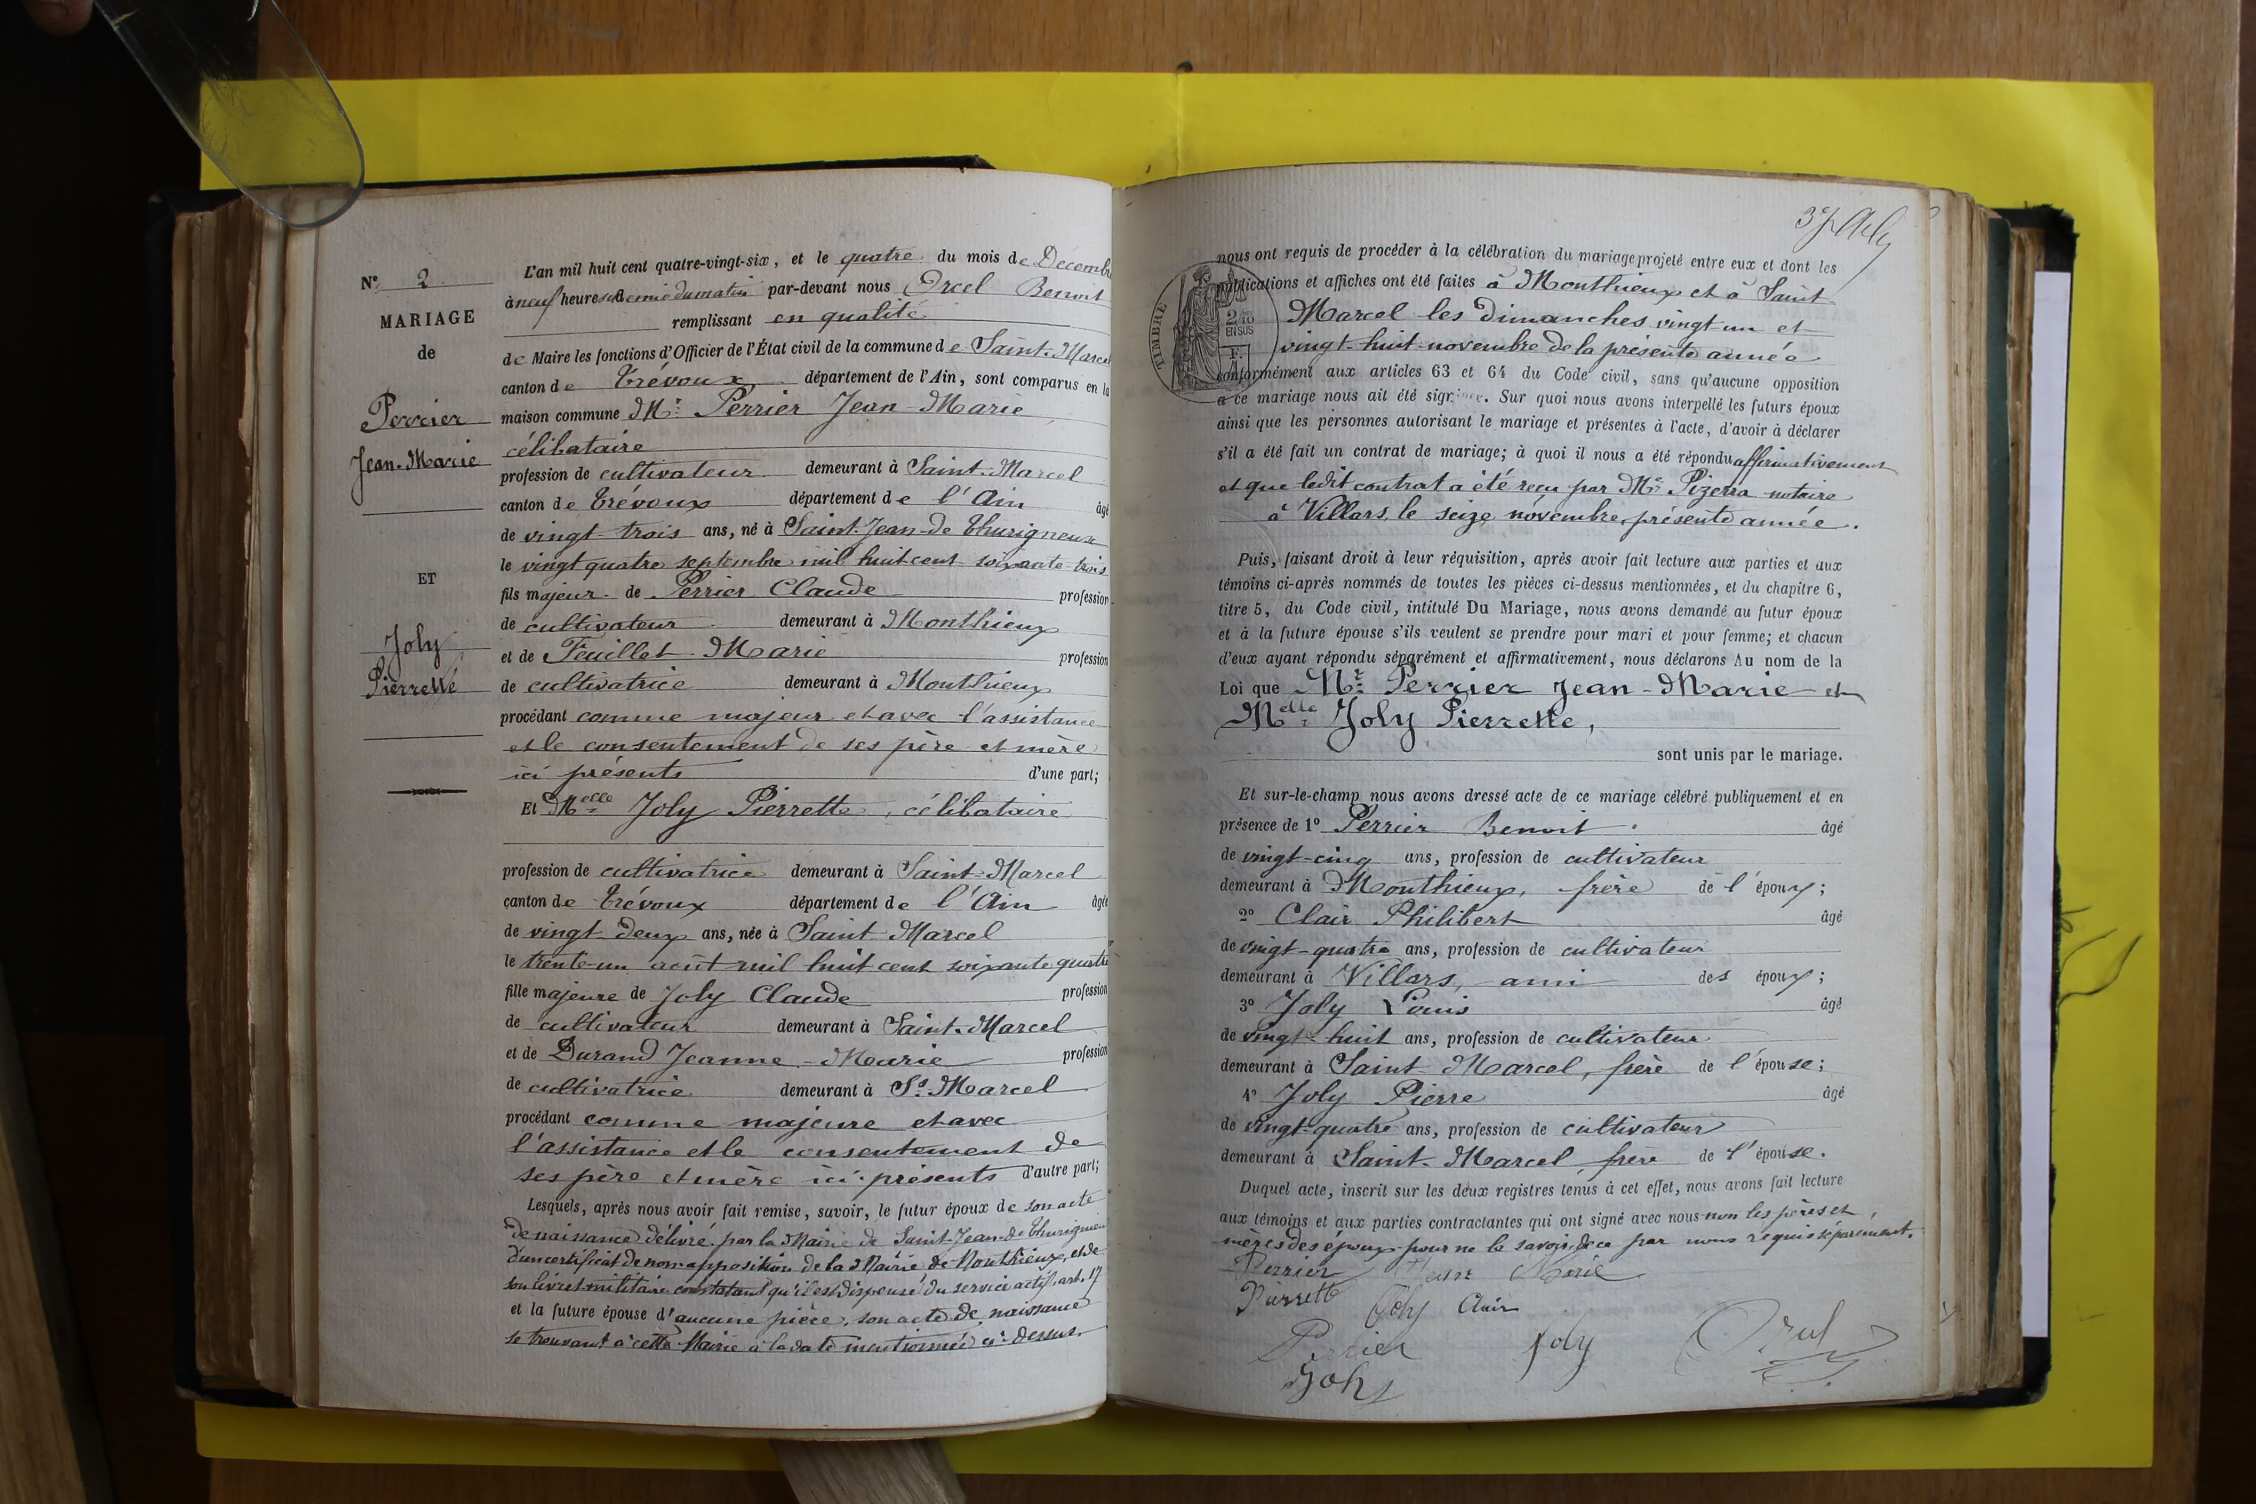 N° 2
MARIAGE
de
Perrier
Jean-Marie
ET
Joly
Pierrette
L'an mil huit cent quatre-vingt-six, et le quatre du mois de Décembre
à neuf heures et demie du matin par-devant nous Orcel Benoit
remplissant en qualité
de Maire les fonctions d'Officier de l'État civil de la commune de Saint-Marcel
canton de Trévoux département de l'Ain, sont comparus en la
maison commune Mr Perrier Jean-Marie
célibataire
profession de cultivateur demeurant à Saint-Marcel
canton de Trévoux département de l'Ain âgé
de vingt-trois ans, né à Saint-Jean-de Thurigneux
le vingt quatre septembre mil huit cent soixante-trois
fils majeur de Perrier Claude profession
de cultivateur demeurant à Monthieux
et de Feuillet Marie profession
de cultivatrice demeurant à Monthieux
procédant comme majeur et avec l'assistance
et le consentement de ses père et mère
ici présents d'une part;
Et Melle Joly Pierrette, célibataire
profession de cultivatrice demeurant à Saint-Marcel
canton de Trévoux département de l'Ain âgée
de vingt-deux ans, née à Saint-Marcel
le trente-un août mil huit cent soixante quatre
fille majeure de Joly Claude profession
de cultivateur demeurant à Saint-Marcel
et de Durand Jeanne-Marie profession
de cultivatrice demeurant à St Marcel
procédant comme majeure et avec
l'assistance et le consentement de
ses père et mère ici présents d'autre part;
Lesquels, après nous avoir fait remise, savoir, le futur époux de son acte
de naissance délivré par la Mairie de Saint-Jean-de Thurigneux
d'un certificat de non opposition de la Mairie de Monthieux, et de
son livret militaire constatant qu'il est dispensé du service actif, art. 17
et la future épouse d'aucune pièce, son acte de naissance
se trouvant à cette Mairie à la date mentionnée ci-dessus.
nous ont requis de procéder à la célébration du mariage projeté entre eux et dont les
publications et affiches ont été faites à Monthieux et à Saint
Marcel les dimanches vingt un et
vingt-huit novembre de la présente année
TIMBRE
2/10
EN SUS
F.
conformément aux articles 63 et 64 du Code civil, sans qu'aucune opposition
à ce mariage nous ait été signifiée. Sur quoi nous avons interpellé les futurs époux
ainsi que les personnes autorisant le mariage et présentes à l'acte, d'avoir à déclarer
s'il a été fait un contrat de mariage; à quoi il nous a été répondu affirmativement
et que ledit contrat a été reçu par Me Pizerra notaire
à Villars, le seize novembre, présente année.
Puis, faisant droit à leur réquisition, après avoir fait lecture aux parties et aux
témoins ci-après nommés de toutes les pièces ci-dessus mentionnées, et du chapitre 6,
titre 5, du Code civil, intitulé Du Mariage, nous avons demandé au futur époux
et à la future épouse s'ils veulent se prendre pour mari et pour femme; et chacun
d'eux ayant répondu séparément et affirmativement, nous déclarons Au nom de la
Loi que Mr Perrier Jean-Marie et
Melle Joly Pierrette,
sont unis par le mariage.
Et sur-le-champ nous avons dressé acte de ce mariage célébré publiquement et en
présence de 1° Perrier Benoit âgé
de vingt-cinq ans, profession de cultivateur
demeurant à Monthieux, frère de l'époux;
2° Clair Philibert âgé
de vingt-quatre ans, profession de cultivateur
demeurant à Villars, ami des époux;
3° Joly Louis âgé
de vingt-huit ans, profession de cultivateur
demeurant à Saint-Marcel, frère de l'épouse;
4° Joly Pierre âgé
de vingt-quatre ans, profession de cultivateur
demeurant à Saint-Marcel frere de l'épouse.
Duquel acte, inscrit sur les deux registres tenus à cet effet, nous avons fait lecture
aux témoins et aux parties contractantes qui ont signé avec nous non les pères et
mères des époux pour ne le savoir, de ce par nous requis séparément.
Perrier Jean Marie
Pierrette Joly Clair
Perrier Joly Orcel
Joly